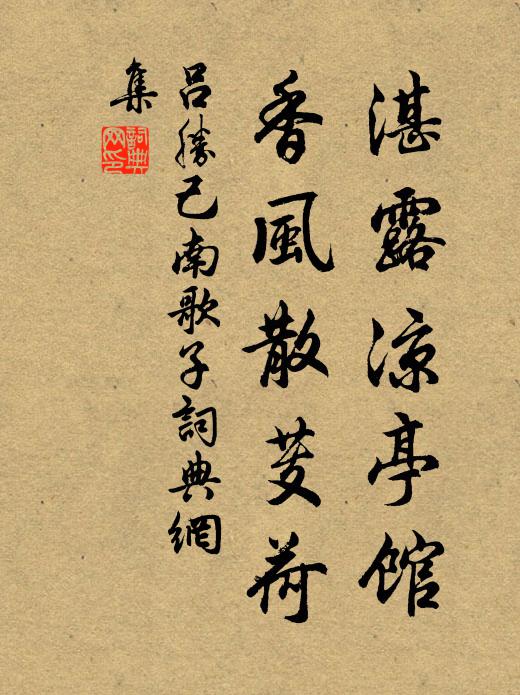 湛露涼亭館
香風散芰荷
吕勝己南歌子詞典網
集
詞典
网印